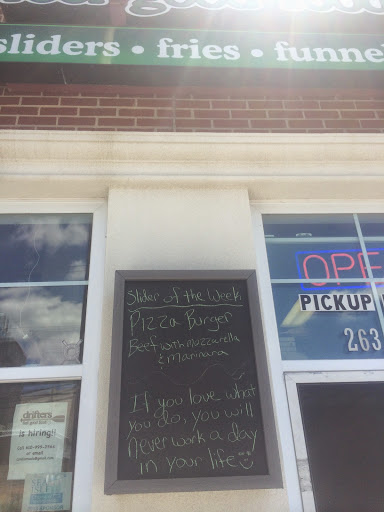 sliders • fries • funne
Slider of the Week
Pizza Burger
Beef with mozzarella
& Marinara
If you love what
you do, you will
Never work a day
in your life
OPE
PICKUP
263
drifters
is hiring!!